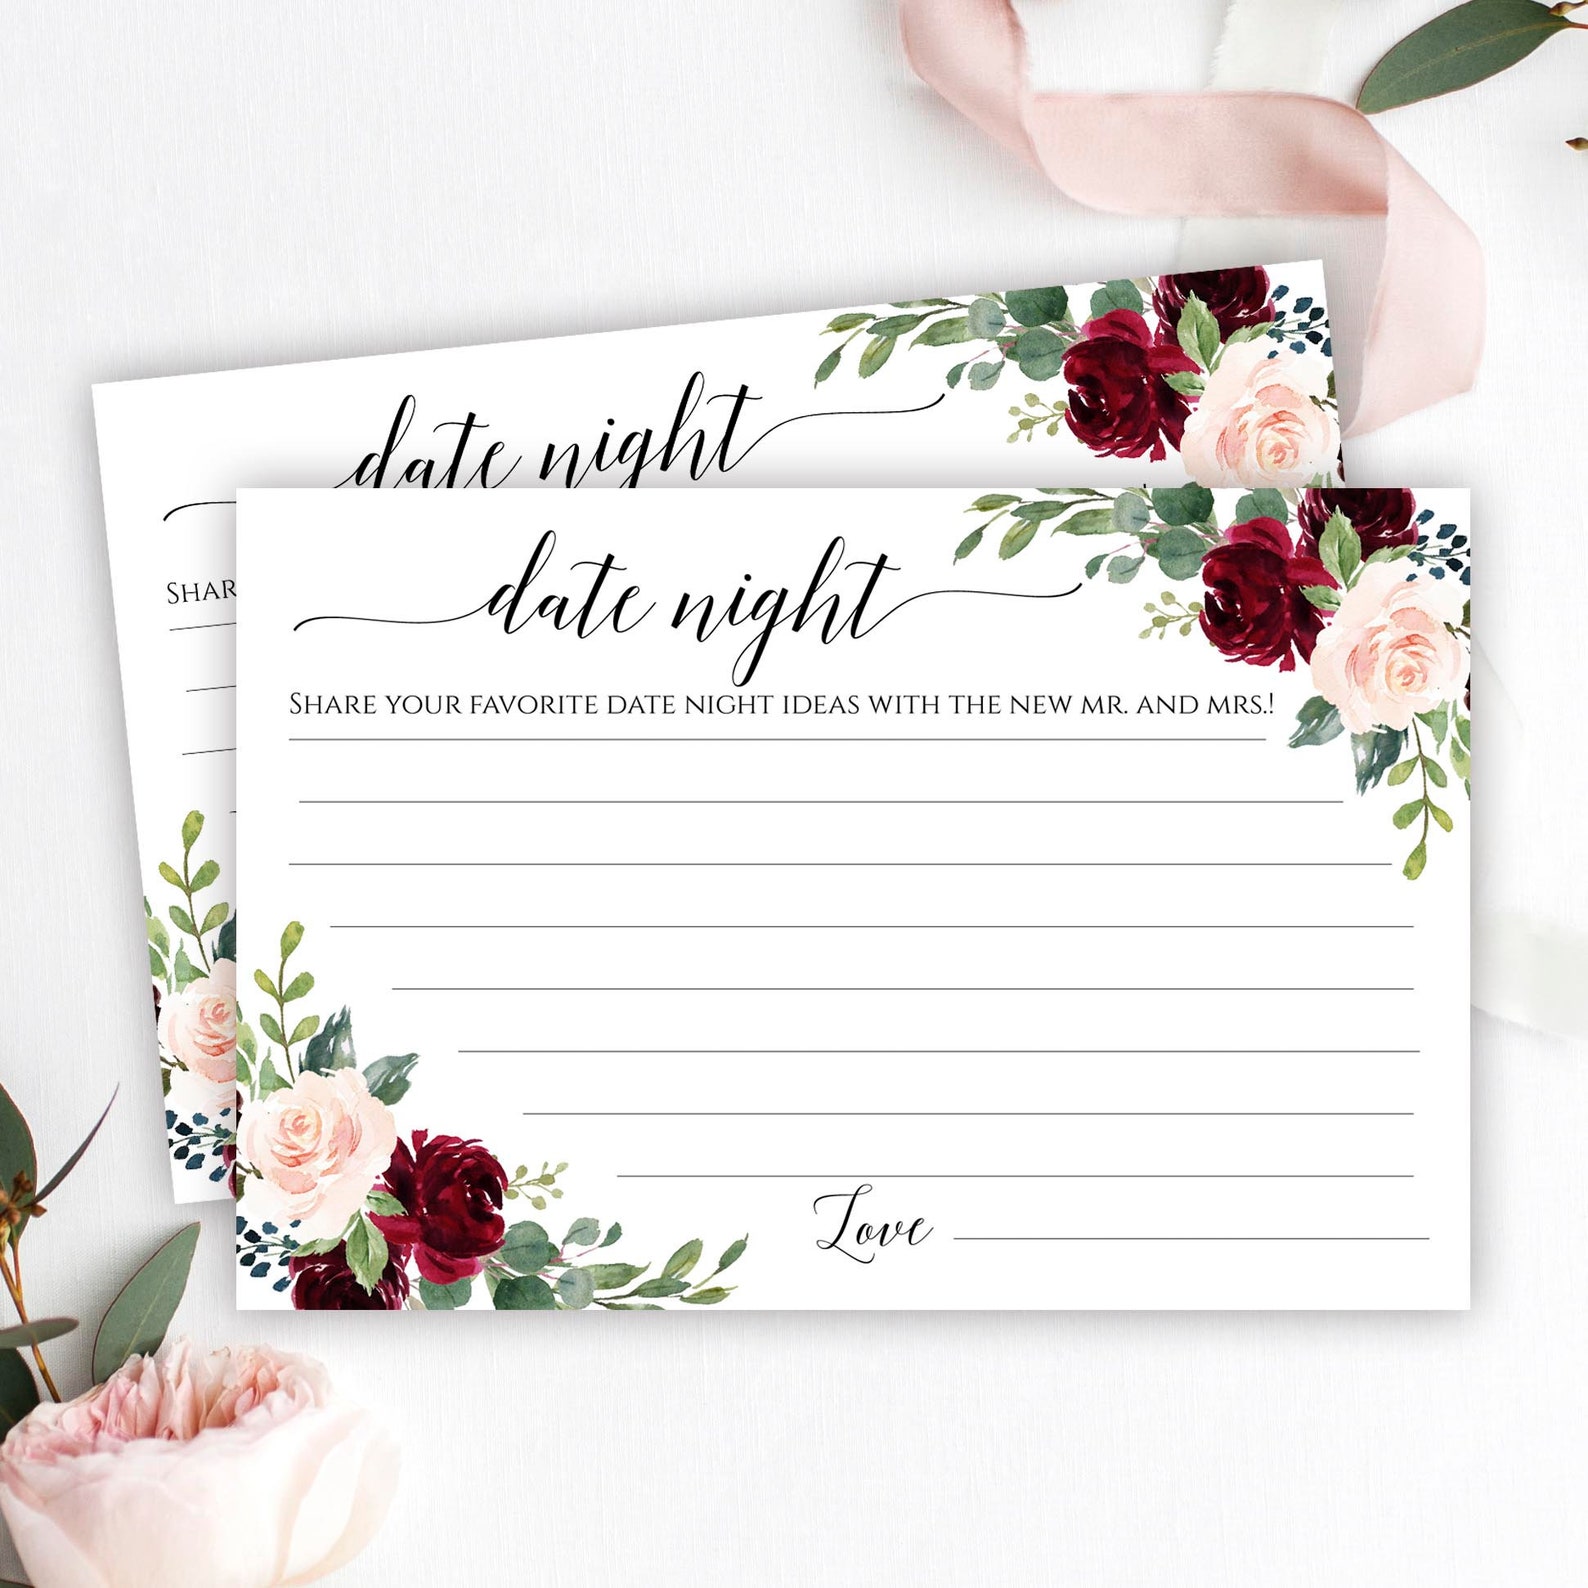 date night
SHAR
date night
SHARE YOUR FAVORITE DATE NIGHT IDEAS WITH THE NEW MR. AND MRS.!
Love